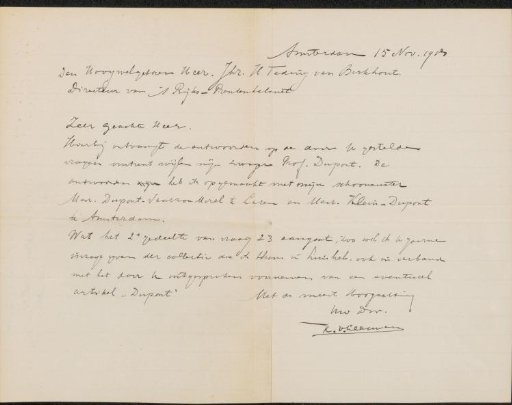 Amsterdam 15 Nov. 19
Den Hoogwelgeboren Heer. Jhr. H Teding van Berkhout
Directeur van 's Rijks-Prentenkabinet
Zeer geachte Heer.
Hierbij ontvangt de antwoorden op de door U gestelde
vragen omtrent wijlen mijn zwager Prof. Dupont. De
antwoorden heb ik opgemaakt met mijn schoonzuster
Mev. Dupont- te en Mev. Klein-Dupont
te Amsterdam.
Wat het 2e gedeelte van vraag 23 aangaat, zou ik U gaarne
der collectie die ik Thans in heb, ook in verband
met het door U uitgesproken voornemen van een eventueel
artikel "Dupont" Met de meeste Hoogachting
Uw Dw.